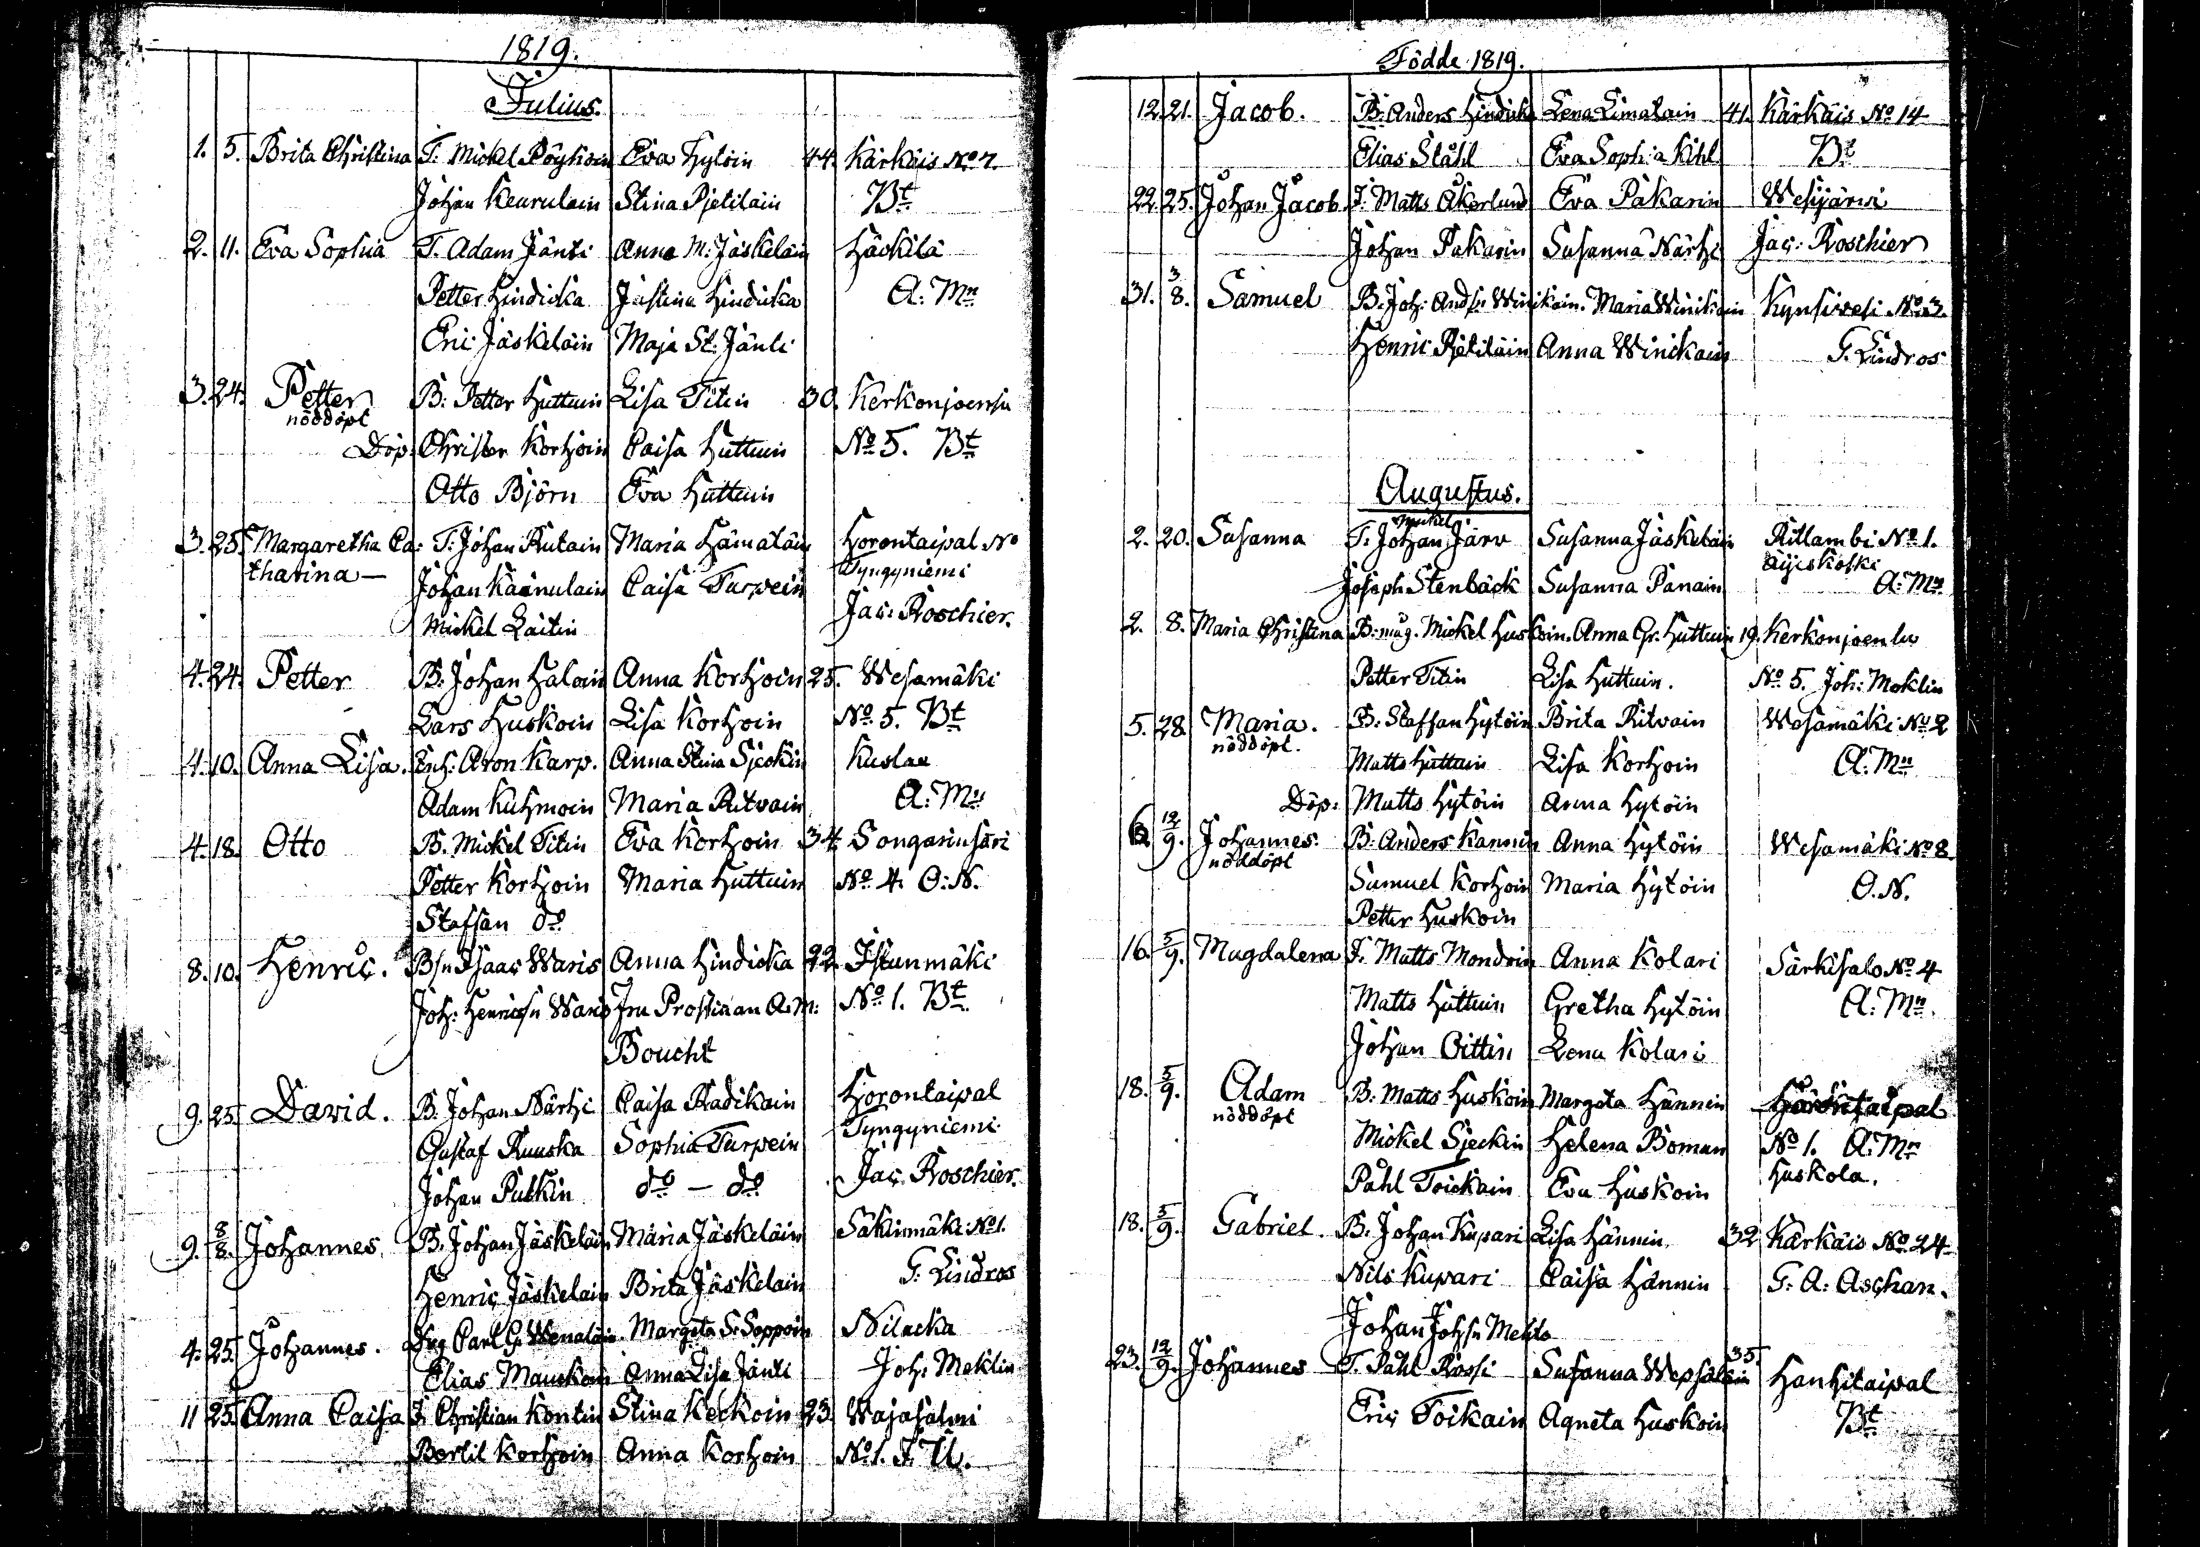 1819.
Julius.
1. 5. Brita Christina T. Mickel Pöyhöin Eva Hytöin 44. Kärkäis No 7.
Johan Keurulain Stina Pjetiläin Bt
2. 11. Eva Sophia T. Adam Jänti Anna M: Jäskeläin Häckilä
Petter Hindicka Justina Hindicka A: Mn
Eric Jäskeläin Maja St: Jänti
3. 24. Petter B: Petter Huttuin Lisa Titin 30. Kerkonjoensu
nöddöpt
Döp: Christer Korhoin Caisa Huttuin No 5. Bt
Otto Björn Eva Huttuin
3. 25. Margaretha Ca: T: Johan Rutain Maria Hämäläin Horontaipal No
tharina — Johan Käänulain Caisa Turpein Tyngyniemi
Mickel Laitin Jac: Roschier.
4. 24. Petter B. Johan Haloin Anna Korhoin 25. Wesamäki
Lars Huskoin Lisa Korhoin No 5. Bt
4. 10. Anna Lisa. Enh: Aron Karp. Anna Stina Sjeckin Kuslaa
Adam Kuhmoin Maria Ritvain A: Mn
4. 18. Otto B. Mickel Titin Eva Korhoin 34. Songarinsari
Petter Korhoin Maria Huttuin No 4. O: N.
Staffan do
8. 10. Henric. Bsn Isaac Waris Anna Hindicka 22. Istunmäki
Joh: Henricsn Waris Fru Prostinnan A. M: No 1. Bt
Boucht
9. 25. David. B. Johan Närhi Caisa Radikain Horontaipal
Gustaf Ruuska Sophia Turpein Tyngyniemi
Johan Putkin do — do Jac. Roschier.
9. 8/8. Johannes. B. Johan Jäskeläin Maria Jäskeläin Säkinmäki No 1.
Henric Jäskelain Brita Jäskelain G. Lindros
4. 25. Johannes. Drg Carl G. Wenäläin Margeta S. Soppoin Nilacka
Elias Manckoin Anna Lisa Jänti Joh: Meklin
11 25. Anna Caisa I. Christian Kontin Stina Keckoin 23. Wajasalmi
Bertil Korhoin Anna Korhoin No 1. F. U.
Födde 1819.
12. 21. Jacob. B. Anders Hindicka Lena Limatain 41. Kärkäis No 14
Elias Ståhl Eva Sophia Kihl Bt
22. 25. Johan Jacob. I: Matts Åkerlund Eva Pakarin Wesijärwi
Johan Pakarin Susanna Närhi Jac: Roschier
31. 3/8. Samuel B. Joh: Andsn Winikain. Maria Winikain Kynsivesi No 3.
Henric Pjetiläin Anna Winickain G. Lindros
Augustus.
Mickel
2. 20. Susanna T. Johan Järv Susanna Jäskeläin Ritlambi No 1.
Äijeskoski
Joseph Stenbäck Susanna Panain A: Mn
2. 8. Maria Christina B: måg. Mickel Huskoin. Anna Gr. Huttuin 19. Kerkonjoensu
Petter Titin Lisa Huttuin. No 5. Joh: Meklin
5. 28. Maria. B: Staffan Hytöin Brita Ritwain Wesamäki No 2
nöddöpt. Matts Huttuin Lisa Korhoin A: Mn
Döp: Matts Hytöin Anna Hytöin
6. 12/9. Johannes. B. Anders Kannin Anna Hytöin Wesamäki No 8.
nöddöpt
Samuel Korhoin Maria Hytöin O. N.
Petter Huskoin
16. 5/9. Magdalena I. Matts Mondoin Anna Kolari Särkisalo No 4
Matts Huttuin Gretha Hytöin A: Mn.
Johan Oittin Lena Kolari
18. 5/9. Adam B. Matts Huskoin Margeta Hännin
nöddöpt
Mickel Sjeckin Helena Boman No 1. A: Mn
Påhl Toickain Eva Huskoin Huskola.
18. 5/9. Gabriel B. Johan Kupari Lisa Hännin. 32 Kärkäis No 24
Nils Kupari Caisa Hännin G: A: Aschan.
Johan Johsn Mehto
23. 12/9. Johannes T. Påhl Rossi Susanna Wepsäläin 35. Hanhitaipal
Eric Toikain Agneta Huskoin Bt